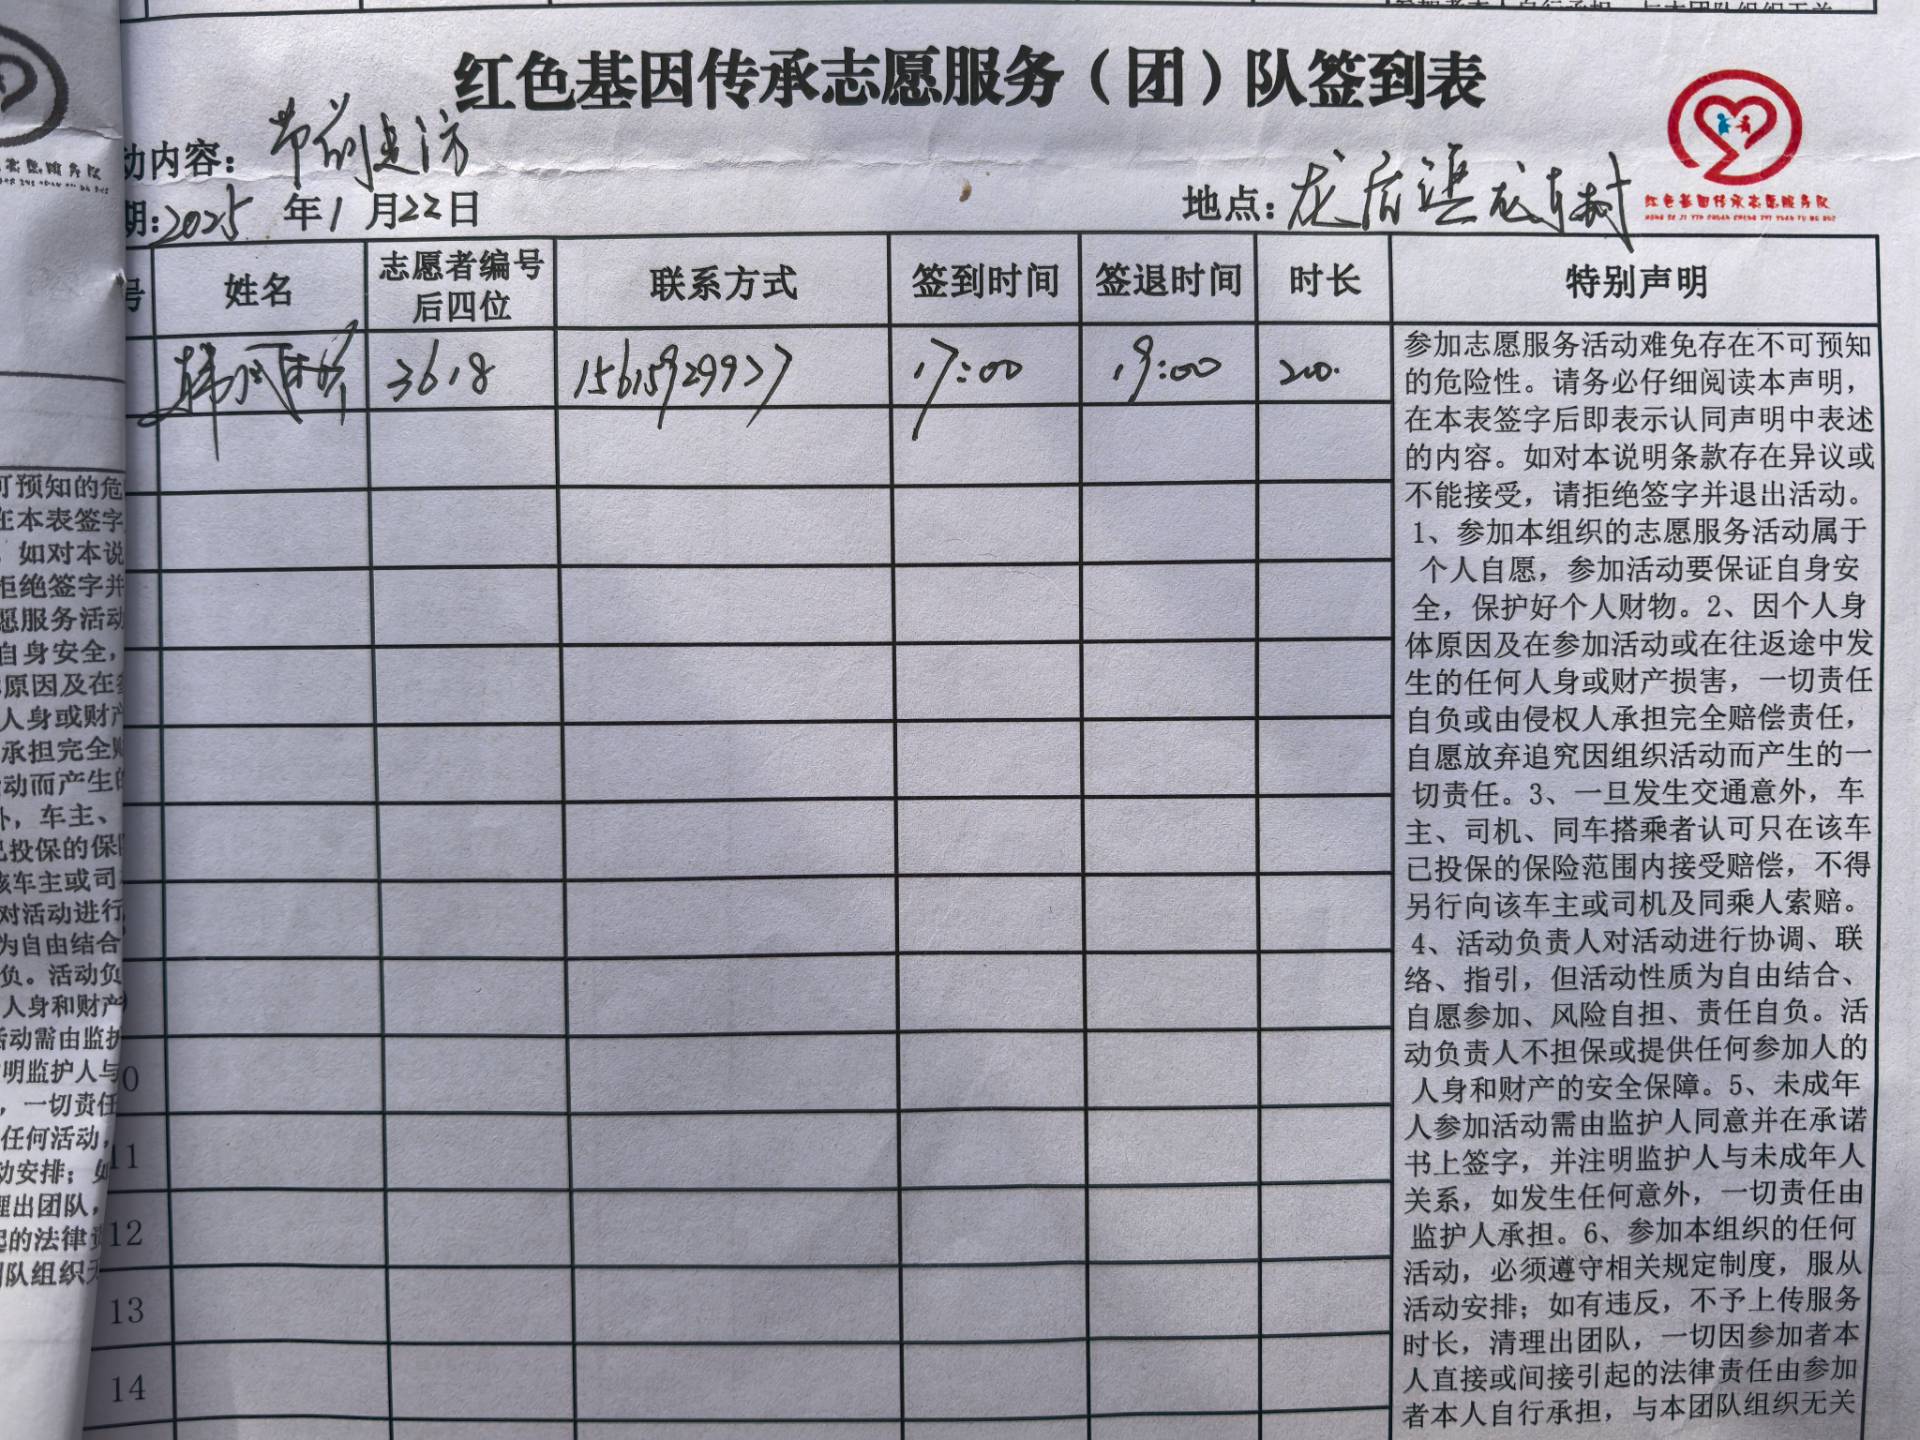 参加者本人自行承担，与本团队组织无关
红色基因传承志愿服务（团）队签到表
动内容：节前走访
期:2025年1月22日
地点：龙居镇龙车村
红色基因传承志愿服务队
号 姓名 志愿者编号后四位 联系方式 签到时间 签退时间 时长 特别声明
韩 3618 15615929927 17:00 19:00 2.00
参加志愿服务活动难免存在不可预知
的危险性。请务必仔细阅读本声明，
在本表签字后即表示认同声明中表述
的内容。如对本说明条款存在异议或
不能接受，请拒绝签字并退出活动。
1、参加本组织的志愿服务活动属于
个人自愿，参加活动要保证自身安
全，保护好个人财物。2、因个人身
体原因及在参加活动或在往返途中发
生的任何人身或财产损害，一切责任
自负或由侵权人承担完全赔偿责任，
自愿放弃追究因组织活动而产生的一
切责任。3、一旦发生交通意外，车
主、司机、同车搭乘者认可只在该车
已投保的保险范围内接受赔偿，不得
另行向该车主或司机及同乘人索赔。
4、活动负责人对活动进行协调、联
络、指引，但活动性质为自由结合、
自愿参加、风险自担、责任自负。活
动负责人不担保或提供任何参加人的
人身和财产的安全保障。5、未成年
人参加活动需由监护人同意并在承诺
书上签字，并注明监护人与未成年人
关系，如发生任何意外，一切责任由
监护人承担。6、参加本组织的任何
活动，必须遵守相关规定制度，服从
活动安排；如有违反，不予上传服务
时长，清理出团队，一切因参加者本
人直接或间接引起的法律责任由参加
者本人自行承担，与本团队组织无关
0
11
12
13
14
可预知的危
在本表签字
如对本说
拒绝签字并
愿服务活动
自身安全，
原因及在参
人身或财产
承担完全赔
动而产生的
外，车主、
已投保的保险
该车主或司
对活动进行
为自由结合
负。活动负
人身和财产
活动需由监护
明监护人与
，一切责任
任何活动，
动安排；如
理出团队，
起的法律责
团队组织无